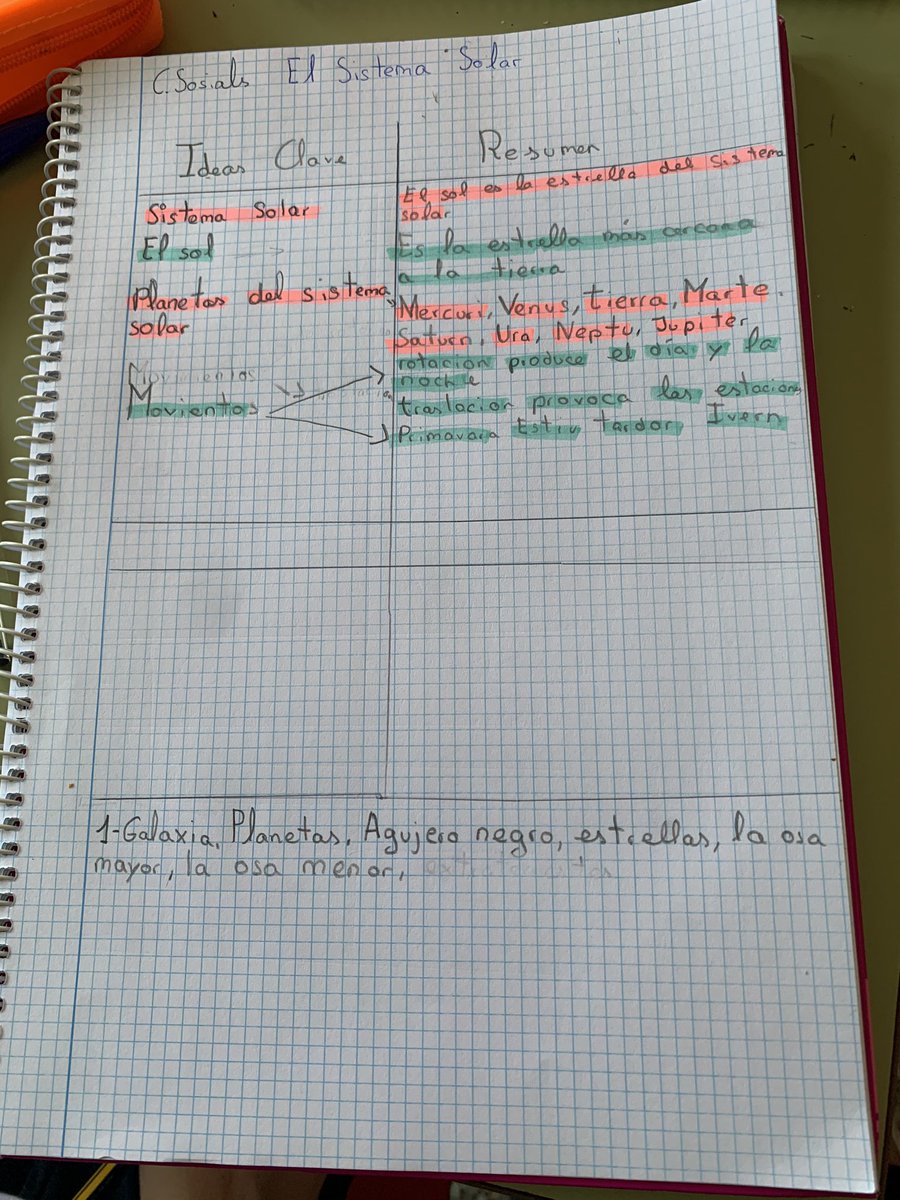 C. Sosials El Sistema Solar
Ideas Clave
Resumen
Sistema Solar
El sol es la estrella del sistema
solar
El sol
Es la estrella más cercana
a la tierra
Planetas del sistema
solar
Mercuri, Venus, tierra, Marte.
Saturn, Ura, Neptu, Jupiter
Movimientos
Movientos
rotacion produce el día y la
noche
traslacion provoca las estacions
Primavara Estiu tardor Ivern
1-Galaxia, Planetas, Agujero negro, estrellas, la osa
mayor, la osa menor,